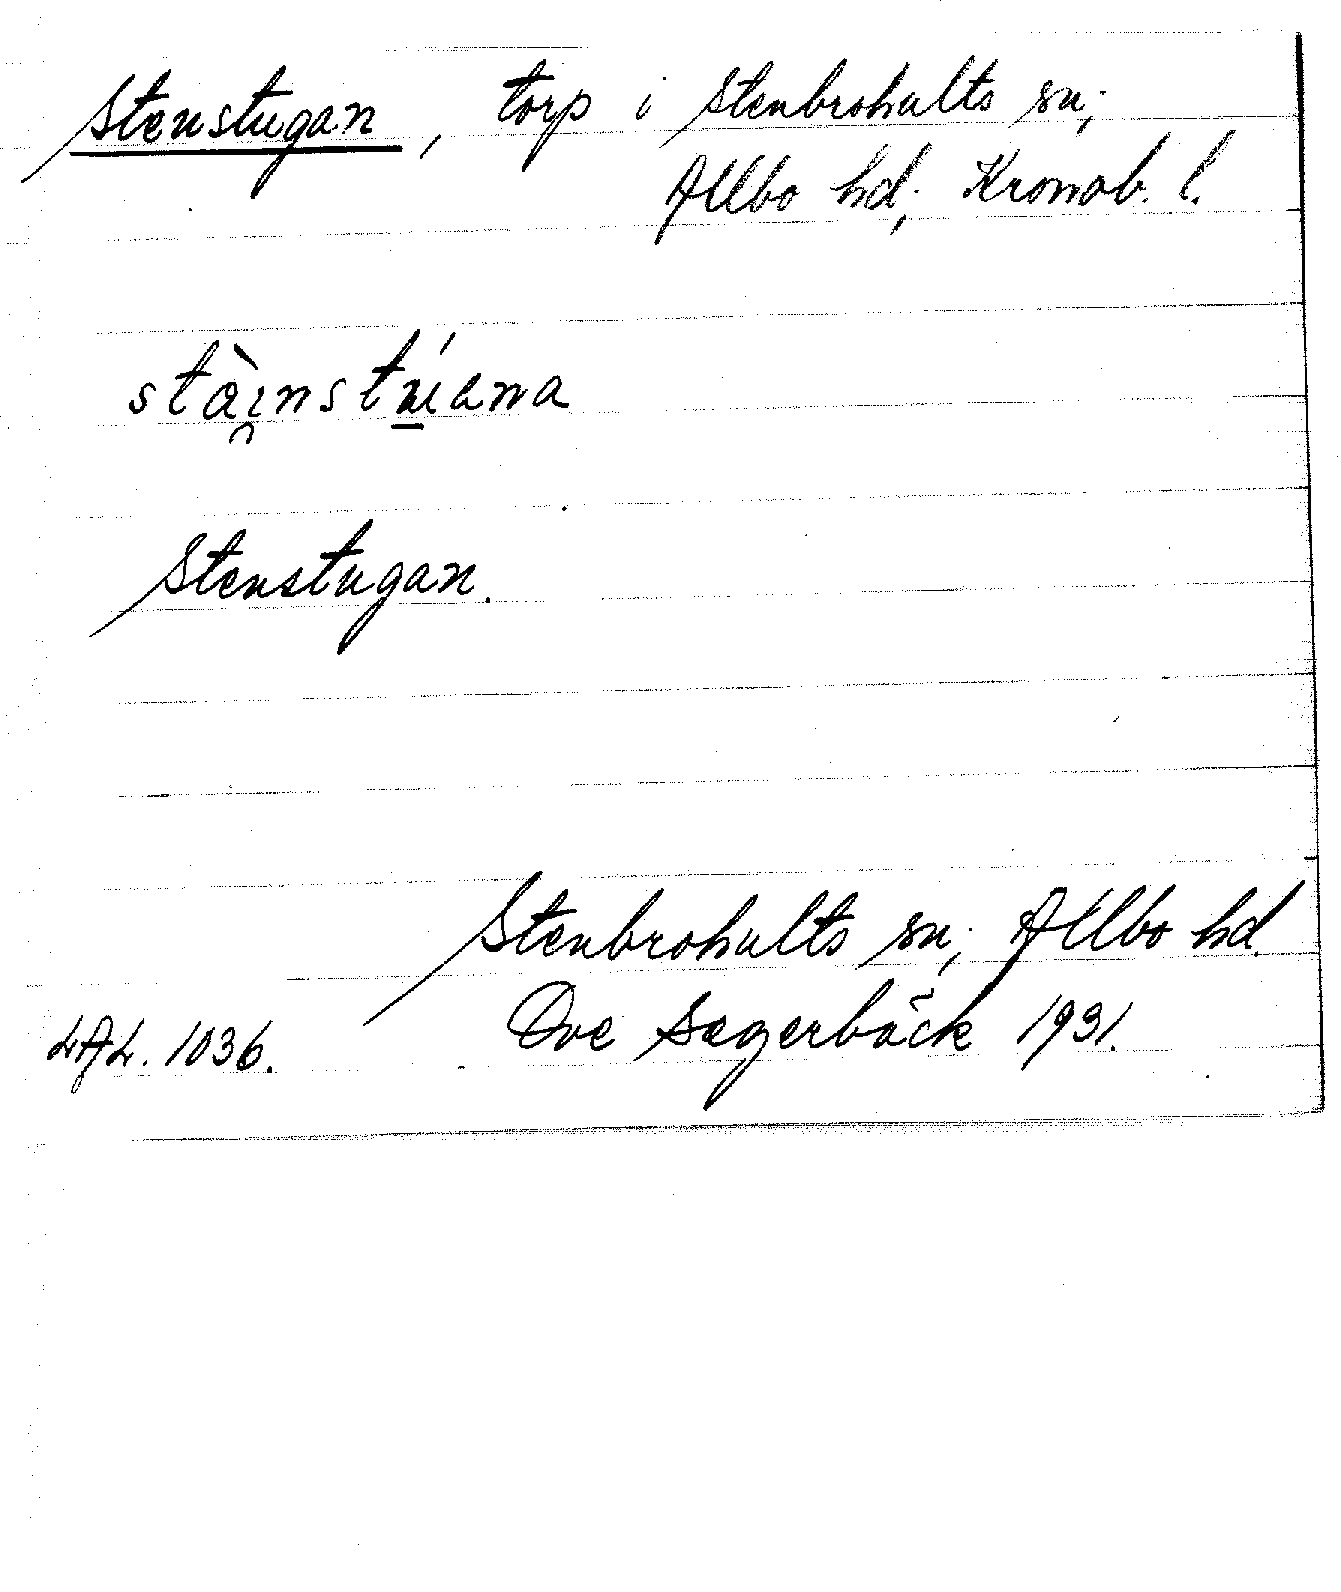 Stenstugan, torp i Stenbrohults sn;
Allbo hd; Kronob. l.
Stenstugan.
Stenbrohults sn; Allbo hd.
Ove Segerbäck 1931.
LAL. 1036.